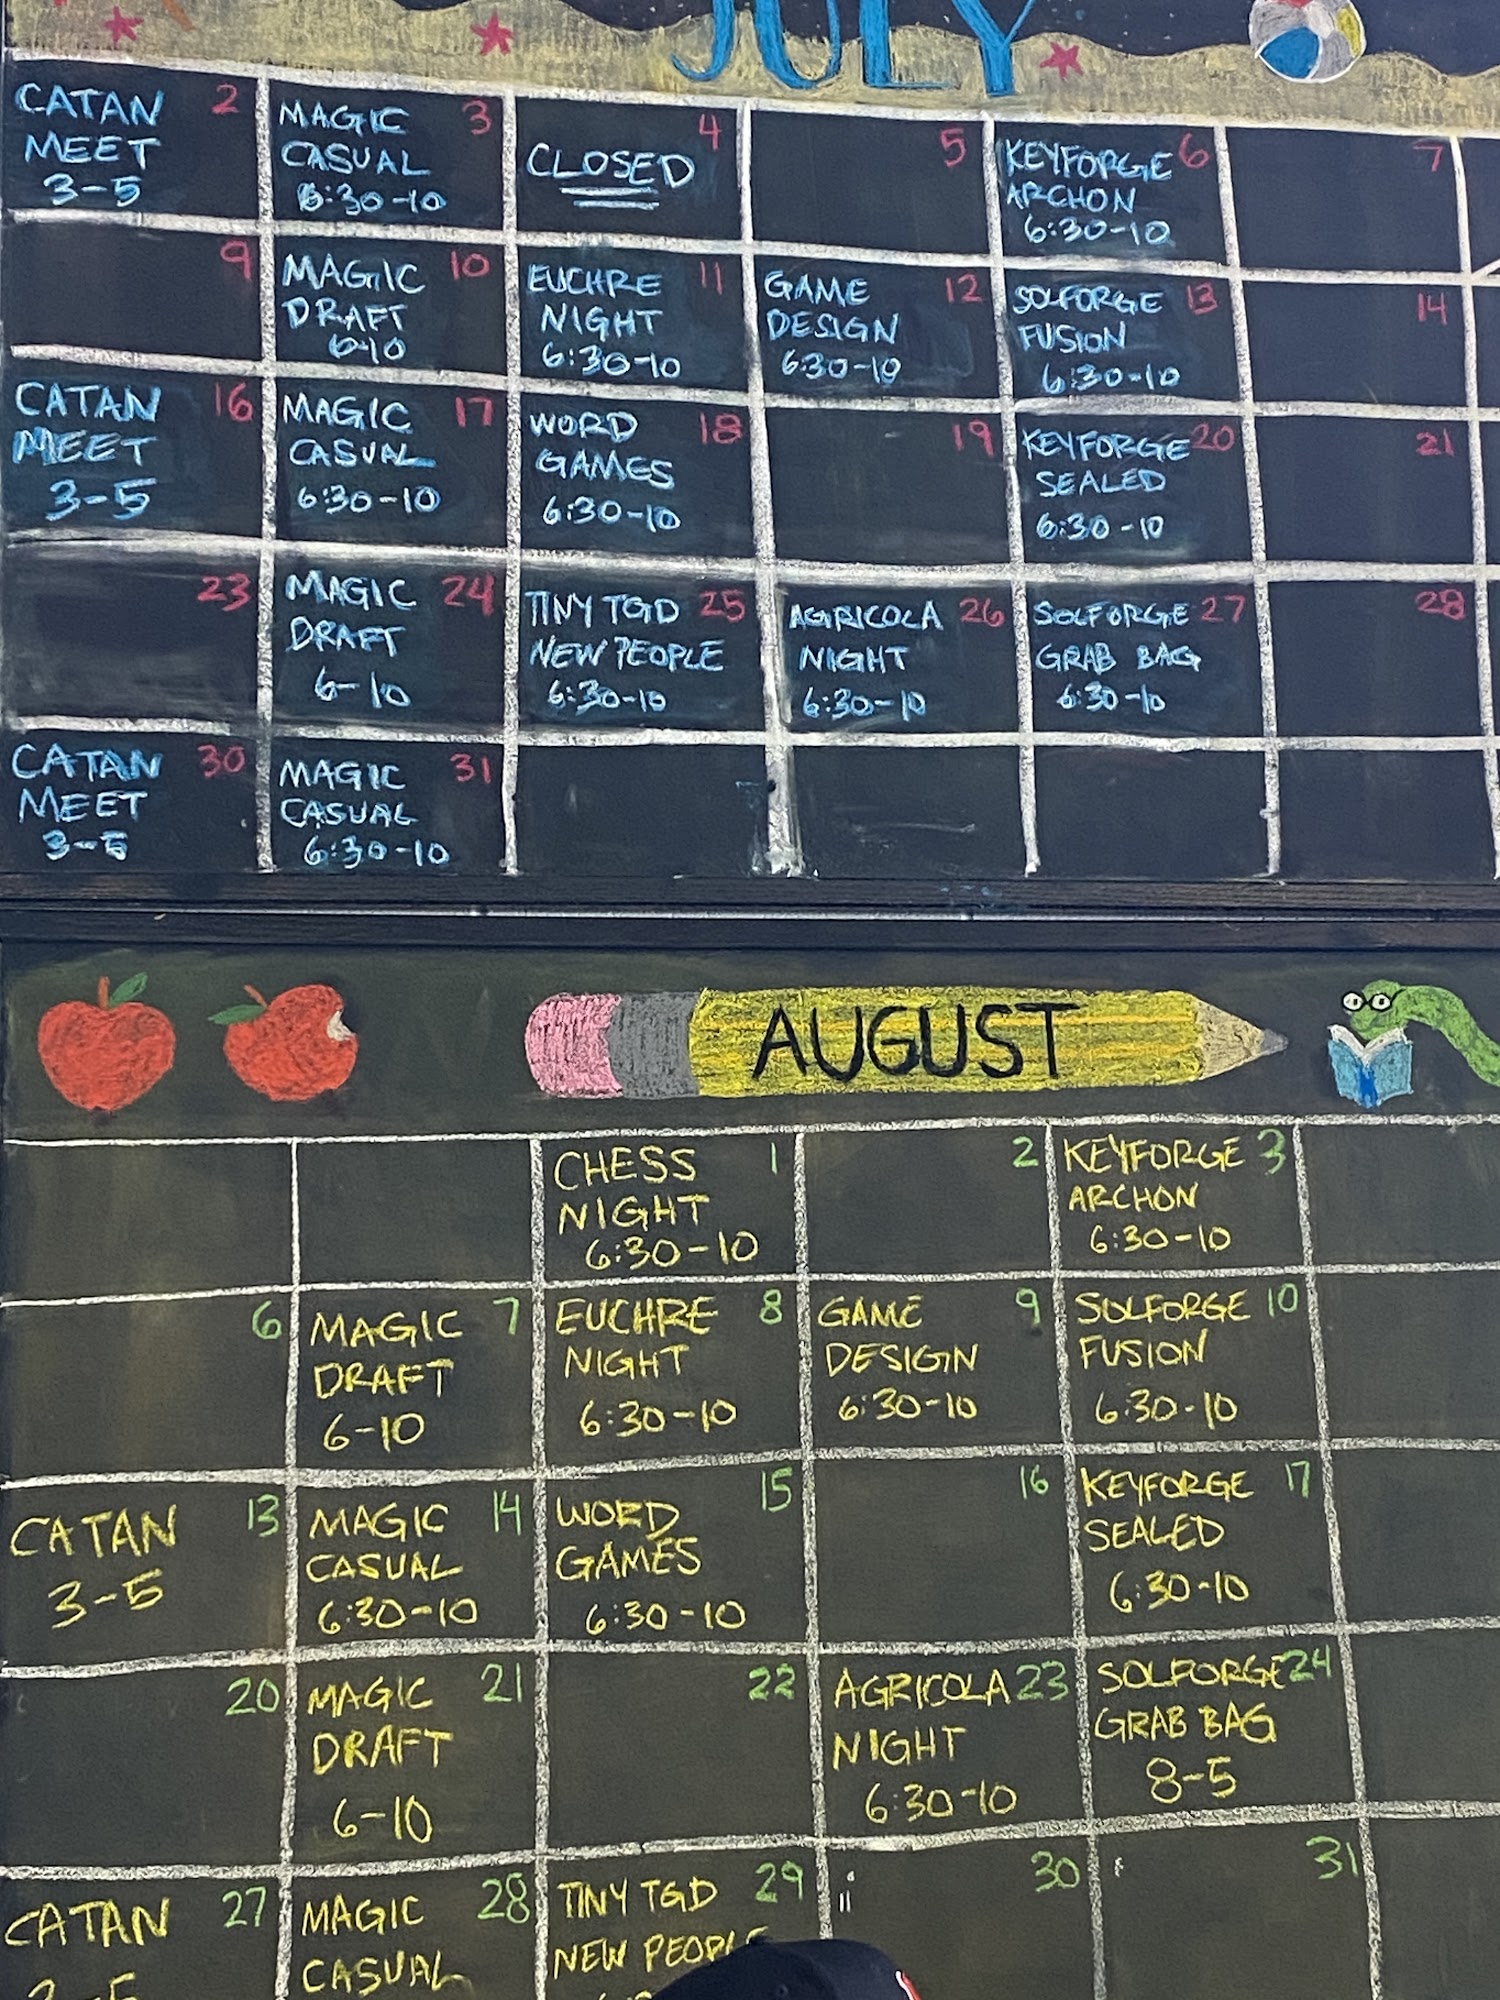 JULY
CATAN 2
MEET
3-5
MAGIC 3
CASUAL
6:30-10
4
CLOSED
5
KEYFORGE 6
ARCHON
6:30-10
7
9
MAGIC 10
DRAFT
6-10
EUCHRE 11
NIGHT
6:30-10
GAME 12
DESIGN
6:30-10
SOLFORGE 13
FUSION
6:30-10
14
CATAN 16
MEET
3-5
MAGIC 17
CASUAL
6:30-10
WORD 18
GAMES
6:30-10
19
KEYFORGE 20
SEALED
6:30-10
21
23
MAGIC 24
DRAFT
6-10
TINY TGD 25
NEW PEOPLE
6:30-10
AGRICOLA 26
NIGHT
6:30-10
SOLFORGE 27
GRAB BAG
6:30-10
28
CATAN 30
MEET
3-5
MAGIC 31
CASUAL
6:30-10
AUGUST
CHESS 1
NIGHT
6:30-10
2
KEYFORGE 3
ARCHON
6:30-10
6
MAGIC 7
DRAFT
6-10
EUCHRE 8
NIGHT
6:30-10
GAME 9
DESIGN
6:30-10
SOLFORGE 10
FUSION
6:30-10
CATAN 13
3-5
MAGIC 14
CASUAL
6:30-10
WORD 15
GAMES
6:30-10
16
KEYFORGE 17
SEALED
6:30-10
20
MAGIC 21
DRAFT
6-10
22
AGRICOLA 23
NIGHT
6:30-10
SOLFORGE 24
GRAB BAG
8-5
CATAN 27
3-5
MAGIC 28
CASUAL
TINY TGD 29
NEW PEOPLE
30
31